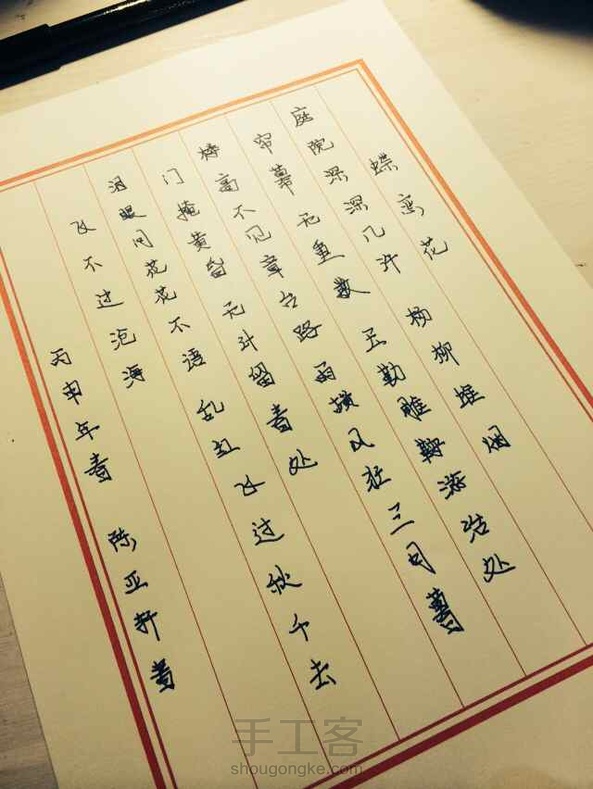 蝶恋花
庭院深深几许 杨柳堆烟
帘幕无重数 玉勒雕鞍游冶处
楼高不见章台路 雨横风狂三月暮
门掩黄昏 无计留春处
泪眼问花花不语 乱红飞过秋千去
飞不过沧海
丙申年春 陈亚轩书
手工客
shougongke.com